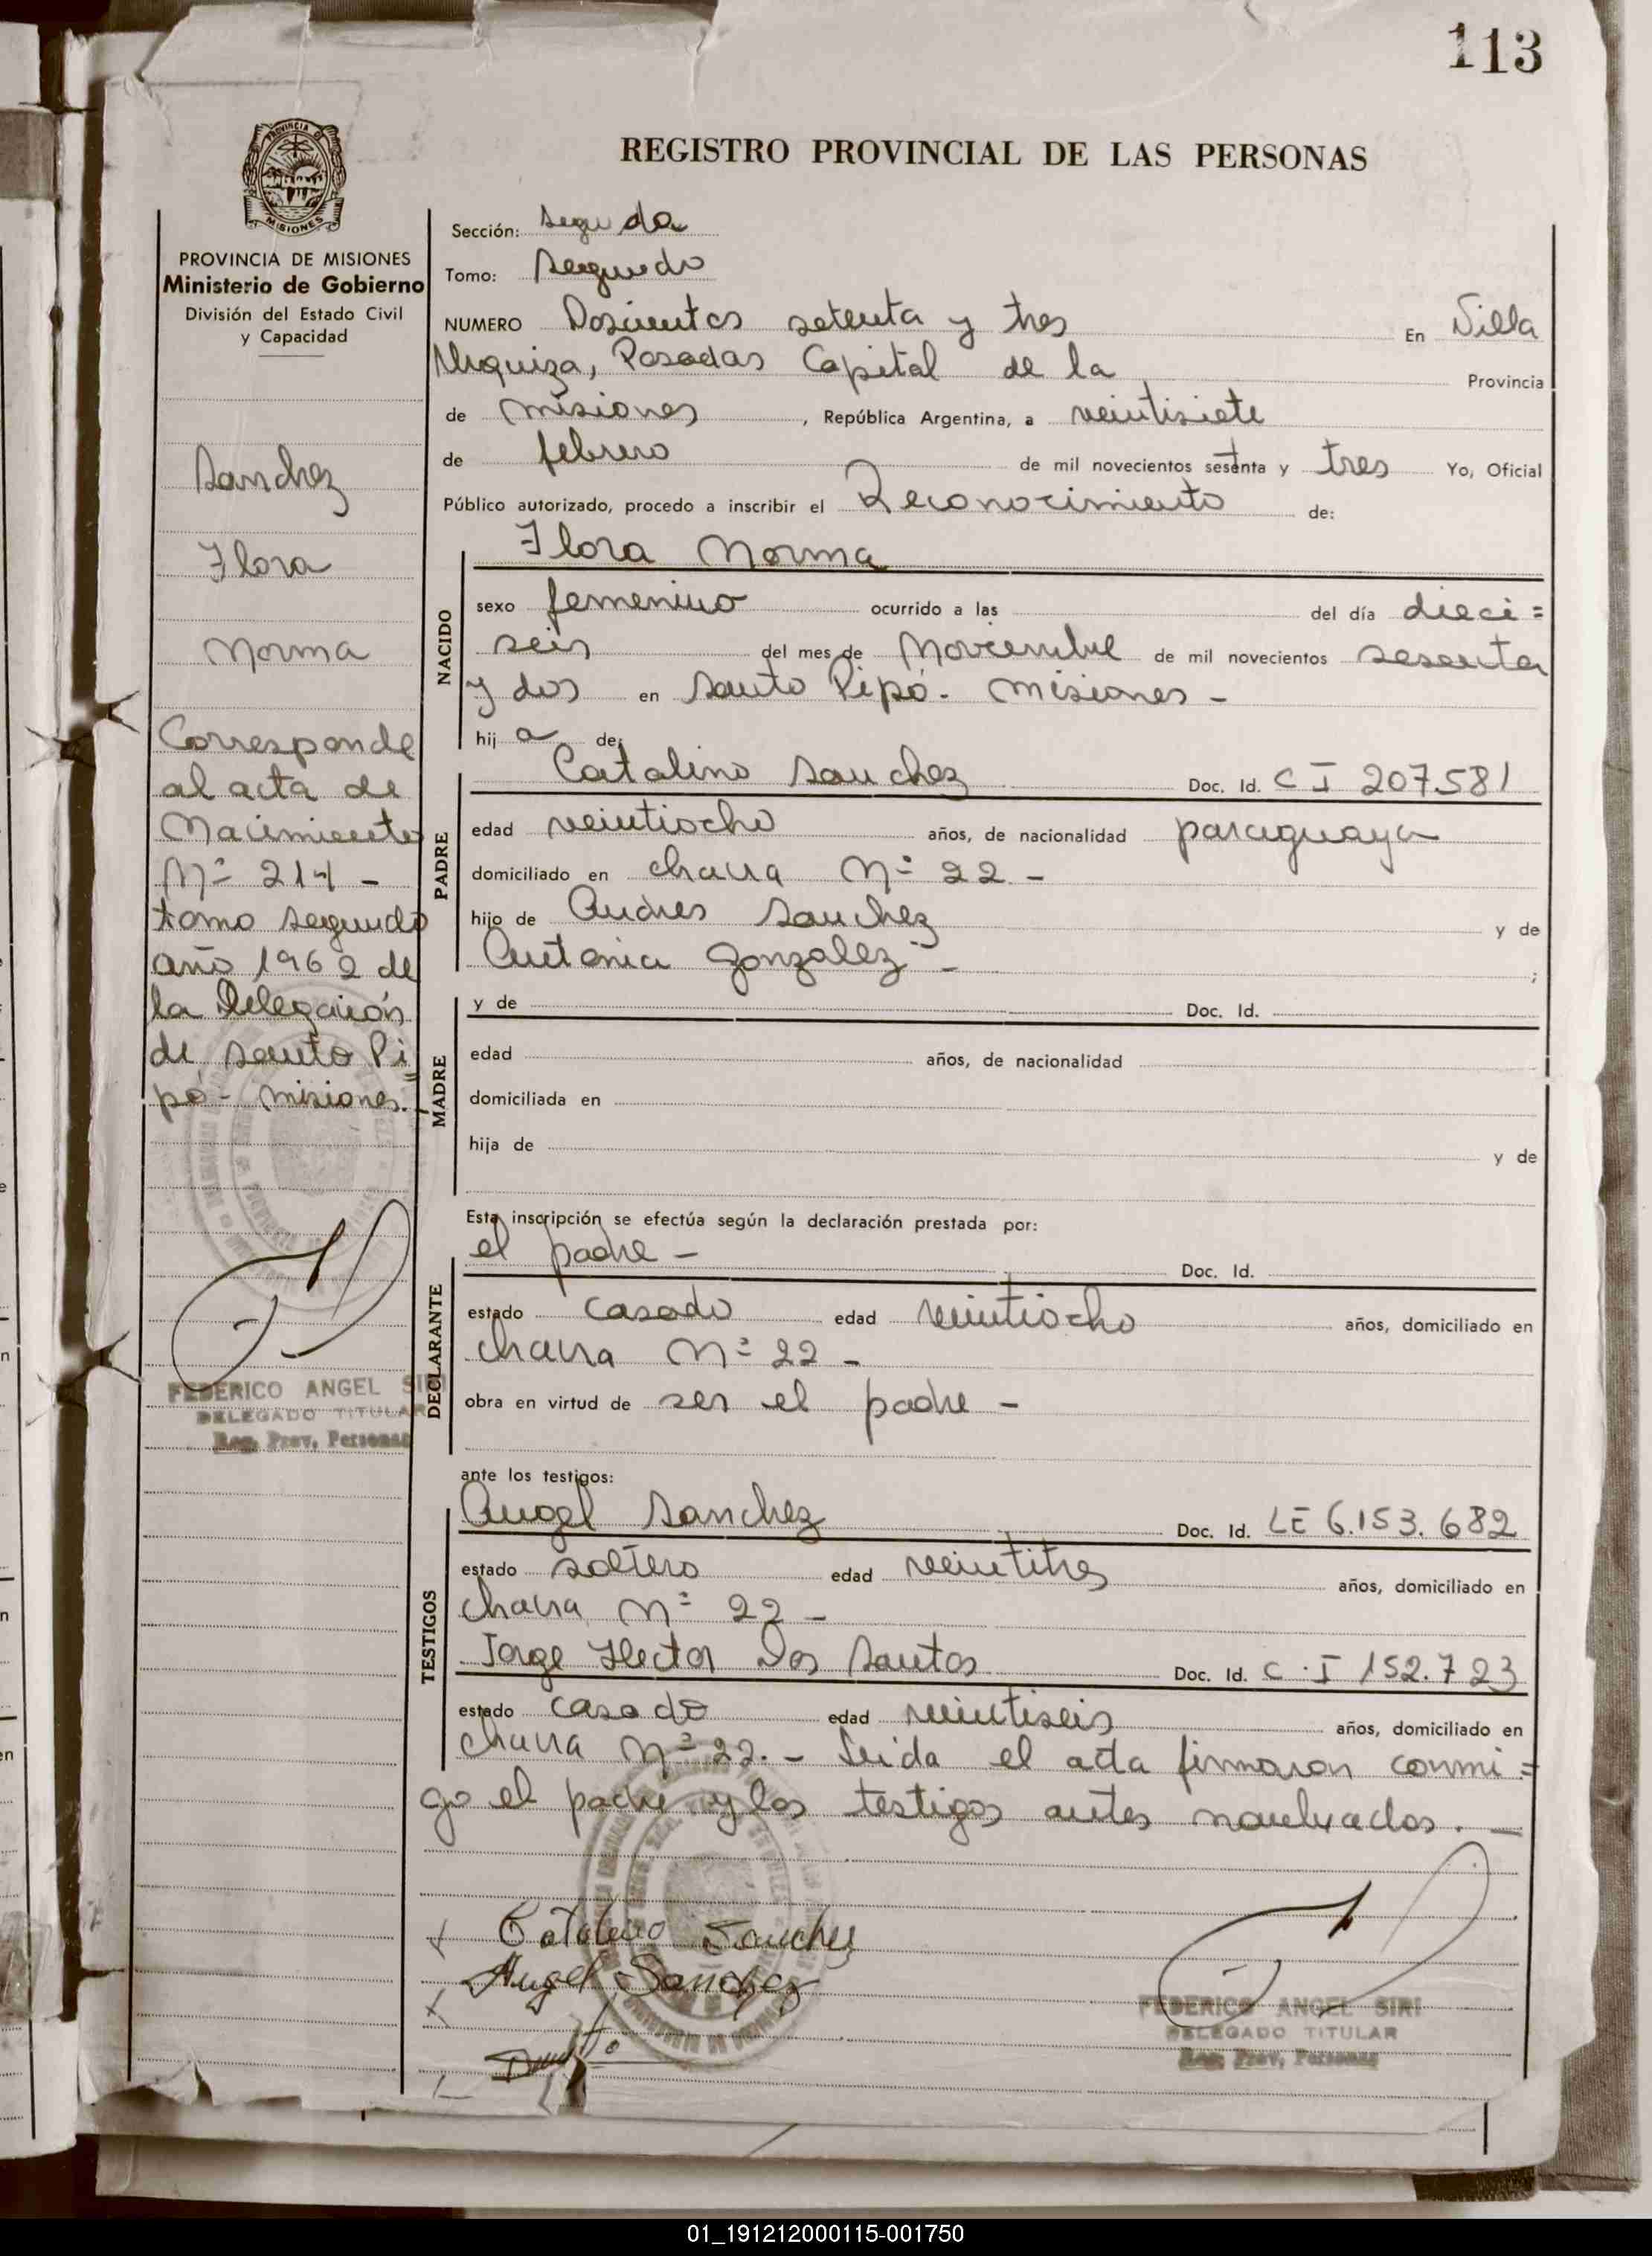 113
REGISTRO PROVINCIAL DE LAS PERSONAS
PROVINCIA DE
MISIONES
PROVINCIA DE MISIONES
Ministerio de Gobierno
División del Estado Civil
y Capacidad
Sanchez
Flora
Norma
Corresponde
al acta de
Nacimiento
Nº
tomo segundo
año 1962 de
la Delegación
de Santo Pi
pó - Misiones.
FEDERICO ANGEL SIRI
DELEGADO TITULAR
Reg. Prov. Personas
Sección: segunda
Tomo: segundo
NUMERO Doscientos setenta y tres En Villa
Urquiza, Posadas Capital de la Provincia
de Misiones, República Argentina, a veintisiete
de febrero de mil novecientos sesenta y tres Yo, Oficial
Público autorizado, procedo a inscribir el Reconocimiento de:
Flora Norma
NACIDO
sexo femenino ocurrido a las del día dieci=
seis del mes de Noviembre de mil novecientos sesenta
y dos en Santo Pipó - Misiones -
hij a de:
PADRE
Catalino Sanchez Doc. Id. C I 207.581
edad veintiocho años, de nacionalidad paraguaya
domiciliado en chacra Nº 22 -
hijo de Andres Sanchez y de
Antonia Gonzalez - ;
MADRE
y de Doc. Id.
edad años, de nacionalidad
domiciliada en
hija de y de
Esta inscripción se efectúa según la declaración prestada por:
DECLARANTE
el padre - Doc. Id.
estado casado edad veintiocho años, domiciliado en
chacra Nº 22 -
obra en virtud de ser el padre -
ante los testigos:
TESTIGOS
Angel Sanchez Doc. Id. LE 6.153.682
estado soltero edad veintitres años, domiciliado en
chacra Nº 22 -
Jorge Hector Dos Santos Doc. Id. C.I 152.723
estado casado edad veintiseis años, domiciliado en
chacra Nº 22. - Leida el acta firmaron conmi=
go el padre y los testigos antes nombrados. -
Catalino Sanchez
Angel Sanchez
FEDERICO ANGEL SIRI
DELEGADO TITULAR
Reg. Prov. Personas
01_191212000115-001750